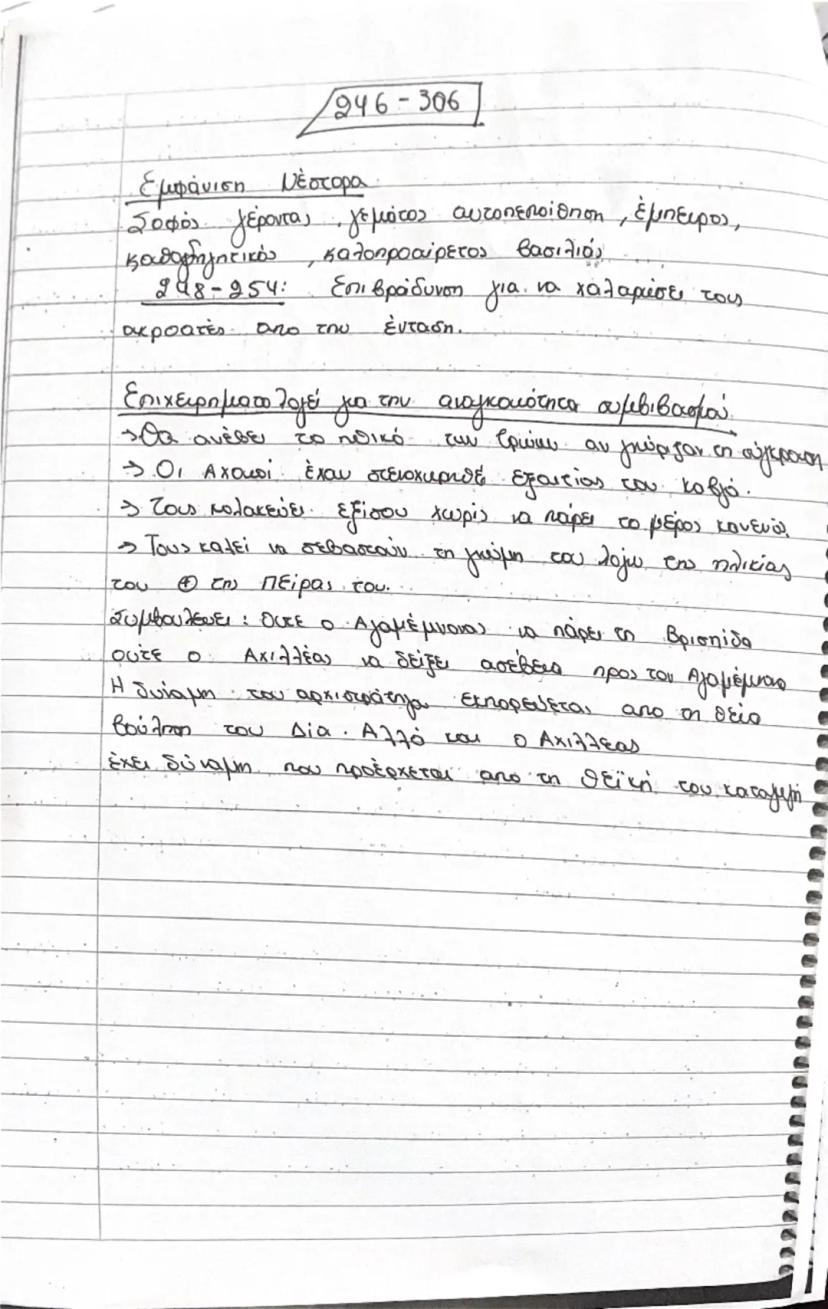 246 - 306
Εμφάνιση Νέστορα
Σοφός γέροντας, γεμάτος αυτοπεποίθηση, έμπειρος,
καθοδηγητικός, καλοπροαίρετος βασιλιάς
248-254: Επιβράδυνση για να χαλαρώσει τους
ακροατές απο την ένταση.
Επιχειρηματολογεί για την αναγκαιότητα συμβιβασμού
→ Θα ανέβει το ηθικό των Τρώων αν γνώριζαν τη σύγκρουση
→ Οι Αχαιοί έχουν στεναχωρηθεί εξαιτίας του καβγά.
→ Τους κολακεύει εξίσου χωρίς να πάρει το μέρος κανενός
→ Τους καλεί να σεβαστούν τη γνώμη του λόγω της ηλικίας
του ⊕ της πείρας του.
Συμβουλεύει: Ούτε ο Αγαμέμνονας να πάρει τη Βρισηίδα
ούτε ο Αχιλλέας να δείξει ασέβεια προς τον Αγαμέμνονα
Η δύναμη του αρχιστράτηγου εκπορεύεται απο τη θεία
βούληση του Δία. Αλλά και ο Αχιλλέας
έχει δύναμη που προέρχεται απο τη θεϊκή του καταγωγή